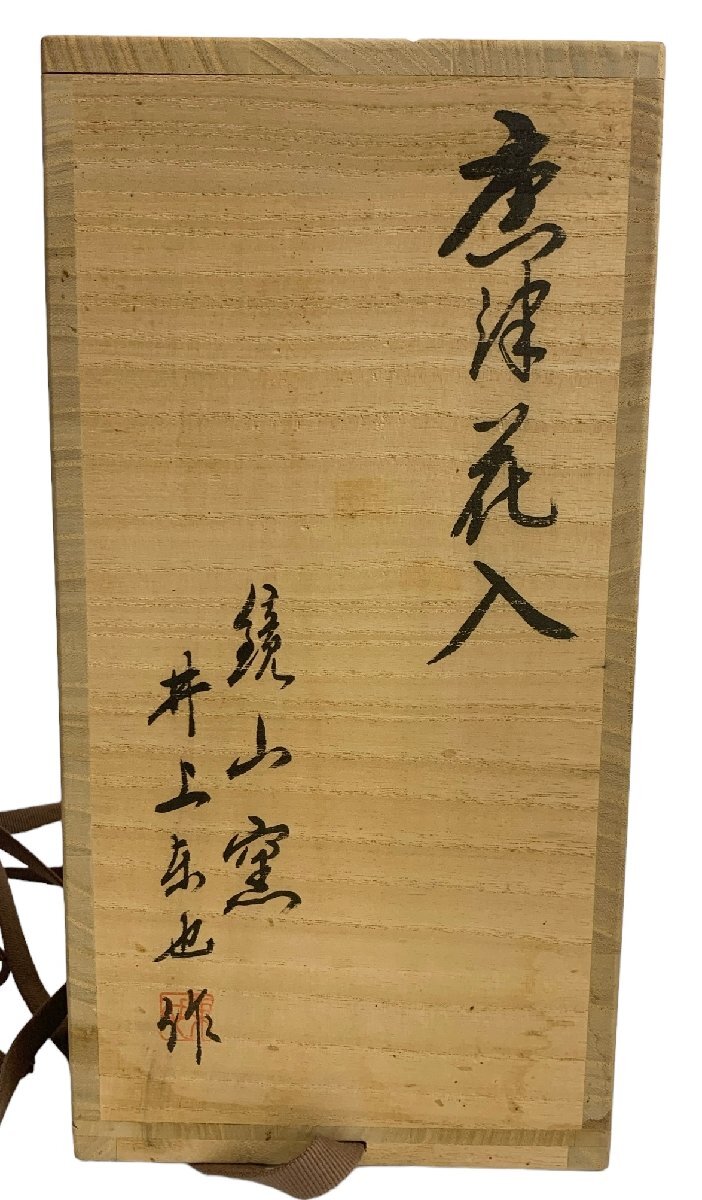 唐津花入
鏡山窯
井上东也作